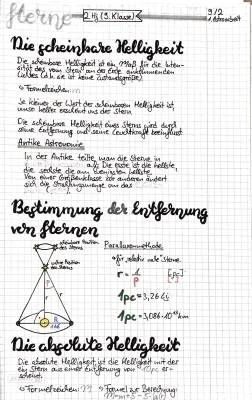 Sterne
2 Hj (9. Klasse)
9/2
1. Astroarbeit
Die scheinbare Helligkeit
Die scheinbare Helligkeit ist ein Maß für die Inten-
sität des vom Stern an der Erde ankommenden
Lichtes (d.h. sie ist keine Zustandsgröße)
Formelzeichen: m
Je kleiner der Wert der scheinbaren Helligkeit ist,
umso heller erscheint uns der Stern.
Die scheinbare Helligkeit eines Sterns wird durch
seine Entfernung und seine Leuchtkraft beeinflusst.
Antike Astronomie
In der Antike teilte man die Sterne in
ein. Die erste ist die hellste,
die sechste die am wenigsten hellste.
Von einer Größenklasse zur anderen ändert
sich die Strahlungsmenge um das
Bestimmung der Entfernung
von Sternen
scheinbare Position
des Sterns
wahre Position
des Sterns
Parallaxenmethode
für relativ nahe Sterne
r = 1/p [pc]
1pc = 3,26 Lj
1pc = 3,086·10¹³ km
Die absolute Helligkeit
Die absolute Helligkeit ist die Helligkeit mit der
ein Stern aus einer Entfernung von 10 pc er-
scheint.
Formelzeichen: M
Formel zur Berechnung: